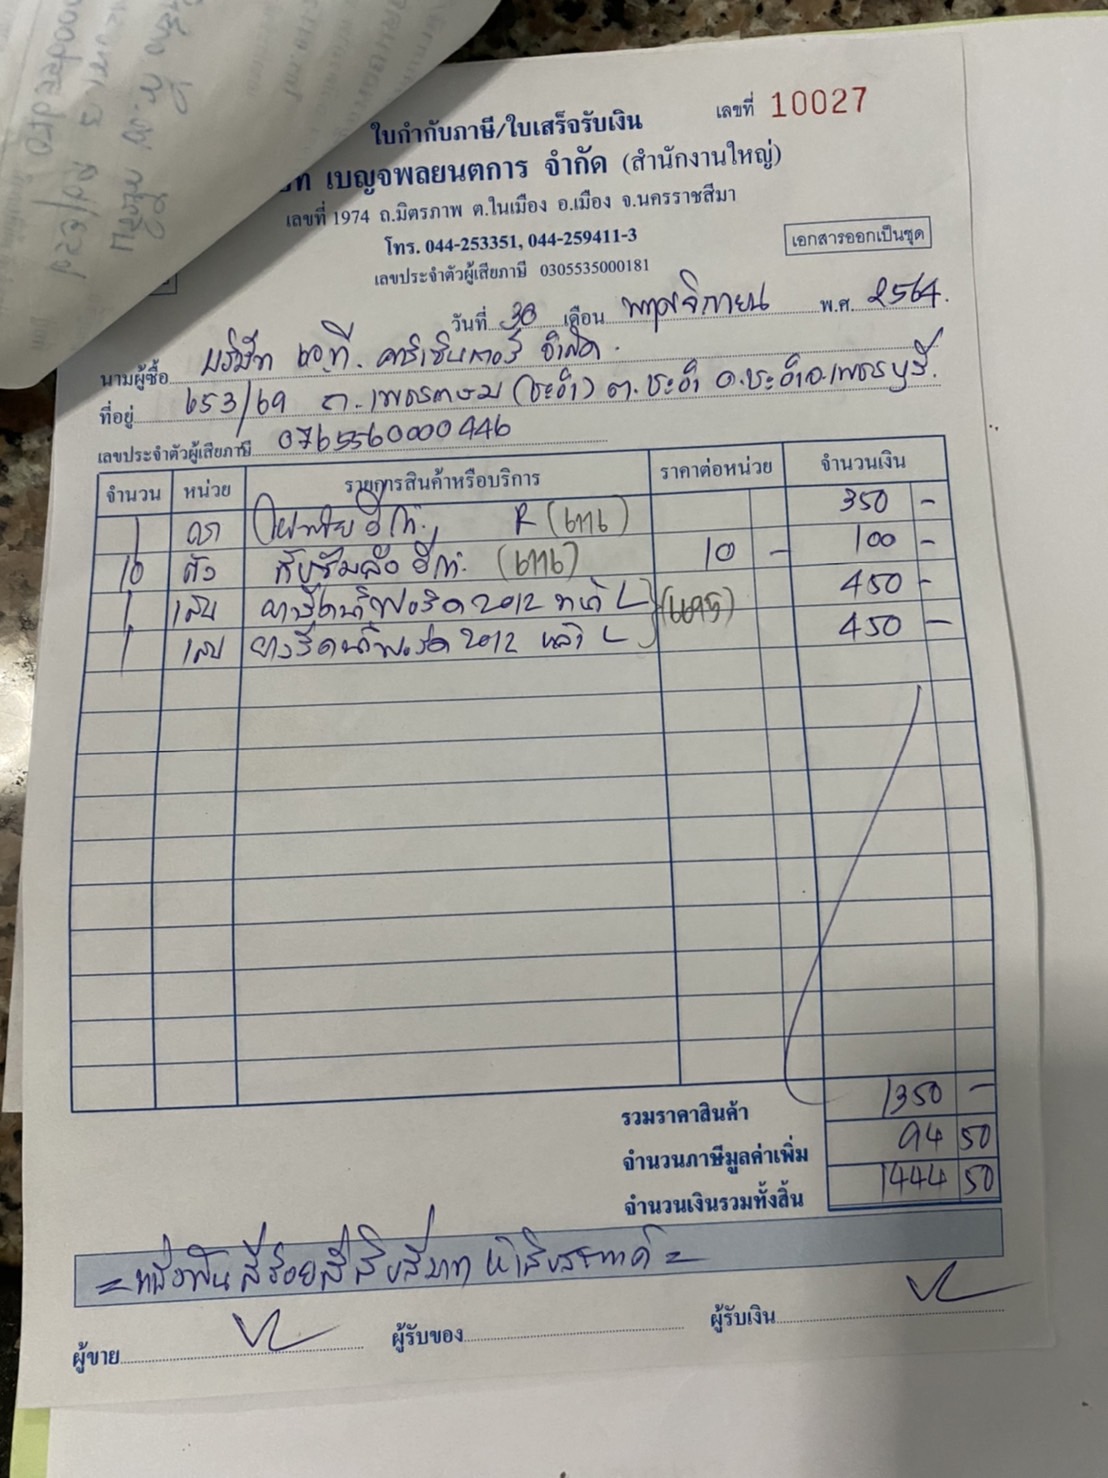 ใบกำกับภาษี/ใบเสร็จรับเงิน
เลขที่ 10027
เบญจพลยนตการ จำกัด (สำนักงานใหญ่)
เลขที่ 1974 ถ.มิตรภาพ ต.ในเมือง อ.เมือง จ.นครราชสีมา
โทร. 044-253351, 044-259411-3
เอกสารออกเป็นชุด
เลขประจำตัวผู้เสียภาษี 0305535000181
วันที่ 30 เดือน พฤศจิกายน พ.ศ. 2564.
นามผู้ซื้อ บริษัท เอ.ที. คาร์เซ็นเตอร์ จำกัด.
ที่อยู่ 653/69 ถ.เพชรเกษม (ชะอำ) ต.ชะอำ อ.ชะอำ จ.เพชรบุรี.
เลขประจำตัวผู้เสียภาษี 0765560000446
จำนวน หน่วย รายการสินค้าหรือบริการ ราคาต่อหน่วย จำนวนเงิน
1 R (6ทาง) 350 -
10 ตัว 10 - 100 -
1 เส้น ยางรีดน้ำ 2012 หน้า L 450 -
1 เส้น ยางรีดน้ำ 2012 หลัง L 450 -
รวมราคาสินค้า 1350 -
จำนวนภาษีมูลค่าเพิ่ม 94 50
จำนวนเงินรวมทั้งสิ้น 1444 50
= หนึ่งพันสี่ร้อยสี่สิบสี่บาทห้าสิบสตางค์ =
ผู้ขาย ผู้รับของ ผู้รับเงิน